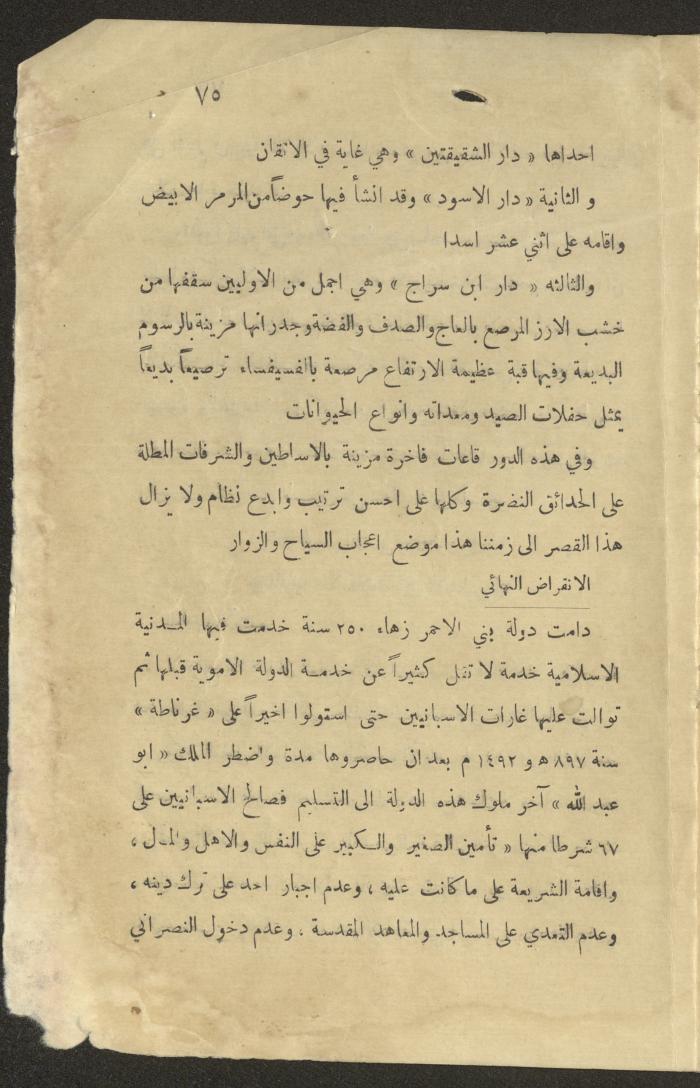 ٧٥
احداها « دار الشقيقتين » وهي غاية في الاتقان
و الثانية « دار الاسود » وقد انشأ فيها حوضاً من المرمر الابيض
واقامه على اثني عشر اسدا
والثالثه « دار ابن سراج » وهي اجمل من الاوليين سقفها من
خشب الارز المرصع بالعاج والصدف والفضة وجدرانها مزينة بالرسوم
البديعة وفيها قبة عظيمة الارتفاع مرصعة بالفسيفساء ترصيعاً بديعاً
يمثل حفلات الصيد ومعداته وانواع الحيوانات
وفي هذه الدور قاعات فاخرة مزينة بالاساطين والشرفات المطلة
على الحدائق النضرة وكلها على احسن ترتيب وابدع نظام ولا يزال
هذا القصر الى زمننا هذا موضع اعجاب السياح والزوار
الانقراض النهائي
دامت دولة بني الاحمر زهاء ٢٥٠ سنة خدمت فيها المـدنية
الاسلامية خدمة لا تقل كثيراً عن خدمـة الدولة الاموية قبلها ثم
توالت عليها غارات الاسبانيين حتى استولوا اخيراً على « غرناطة »
سنة ٨٩٧ هـ و ١٤٩٢ م بعد ان حاصروها مدة واضطر الملك « ابو
عبد الله » آخر ملوك هذه الدولة الى التسليم فصالح الاسبانيين على
٦٧ شرطا منها « تأمين الصغير والكبير على النفس والاهل والمـال ،
واقامة الشريعة على ما كانت عليه ، وعدم اجبار احد على ترك دينه ،
وعدم التعدي على المساجد والمعاهد المقدسة ، وعدم دخول النصراني